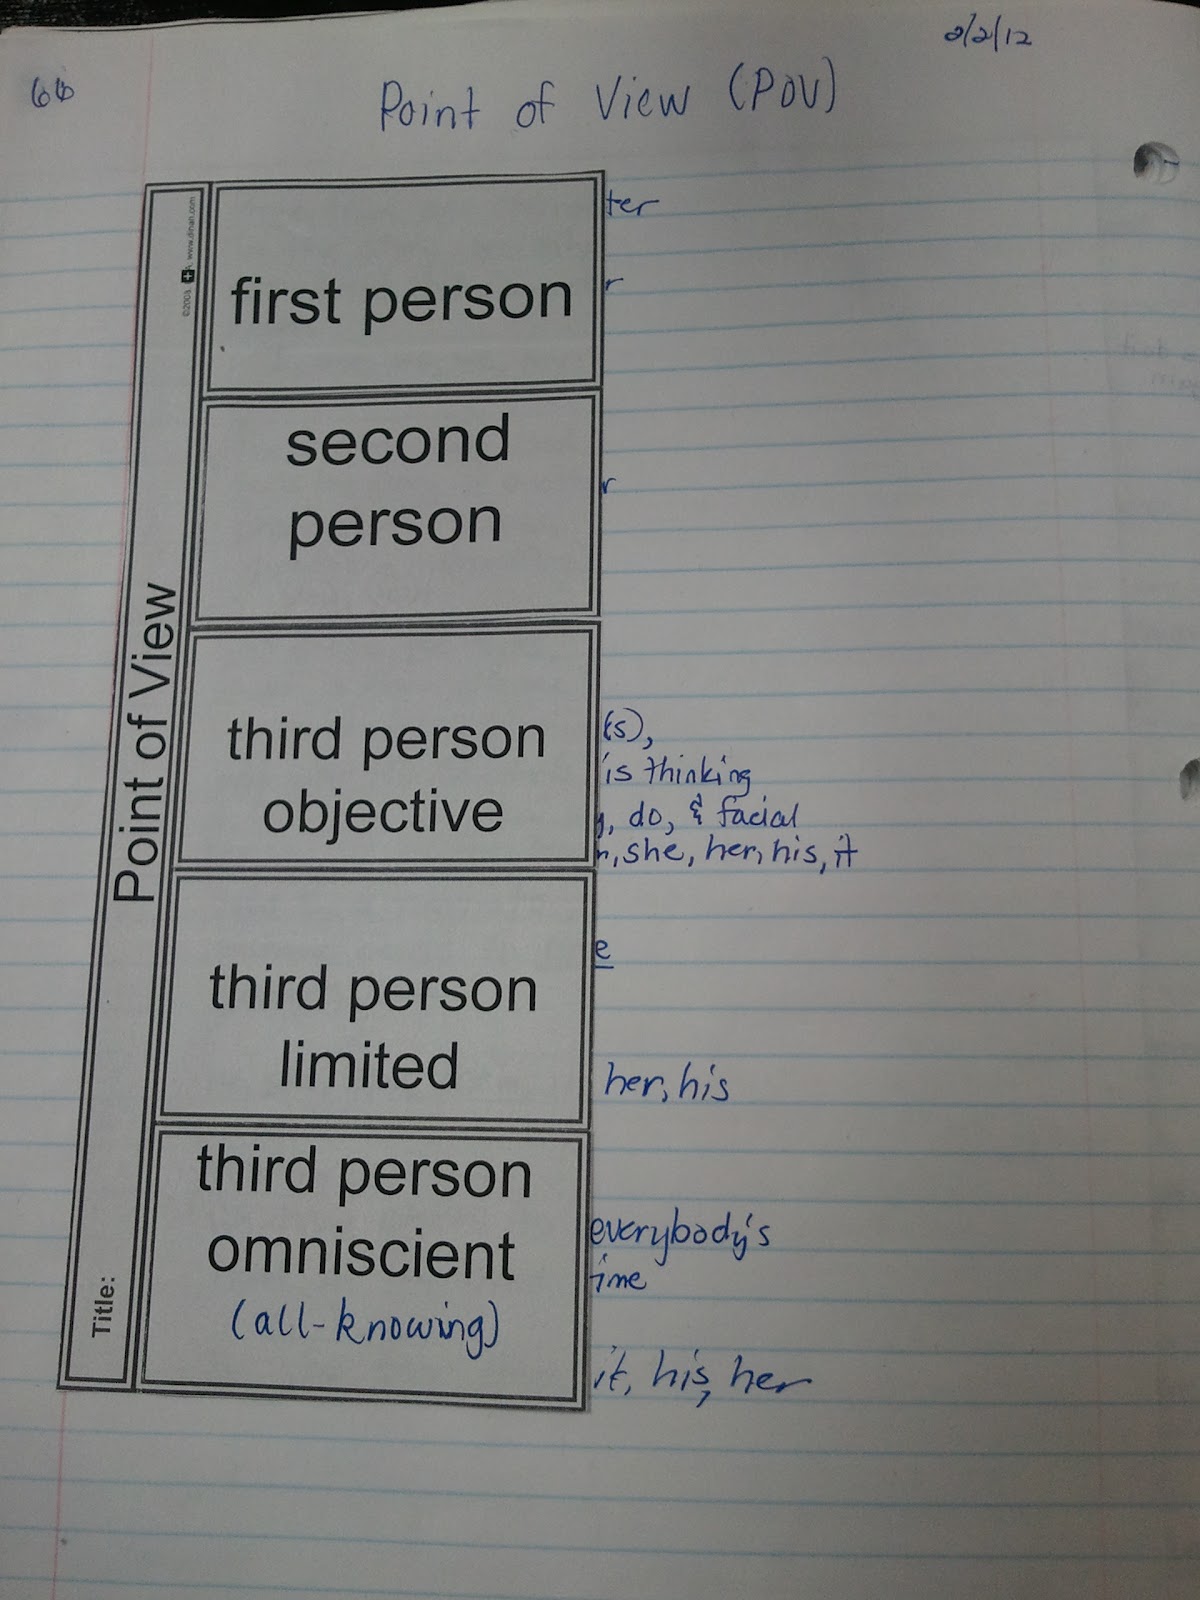 2/2/12
66
Point of View (POV)
©2003, www.dinah.com
Title:
Point of View
first person
ter
r
second
person
r
third person
objective
(s),
is thinking
, do, & facial
, she, her, his, it
third person
limited
e
her, his
third person
omniscient
(all-knowing)
everybody's
ime
it, his, her